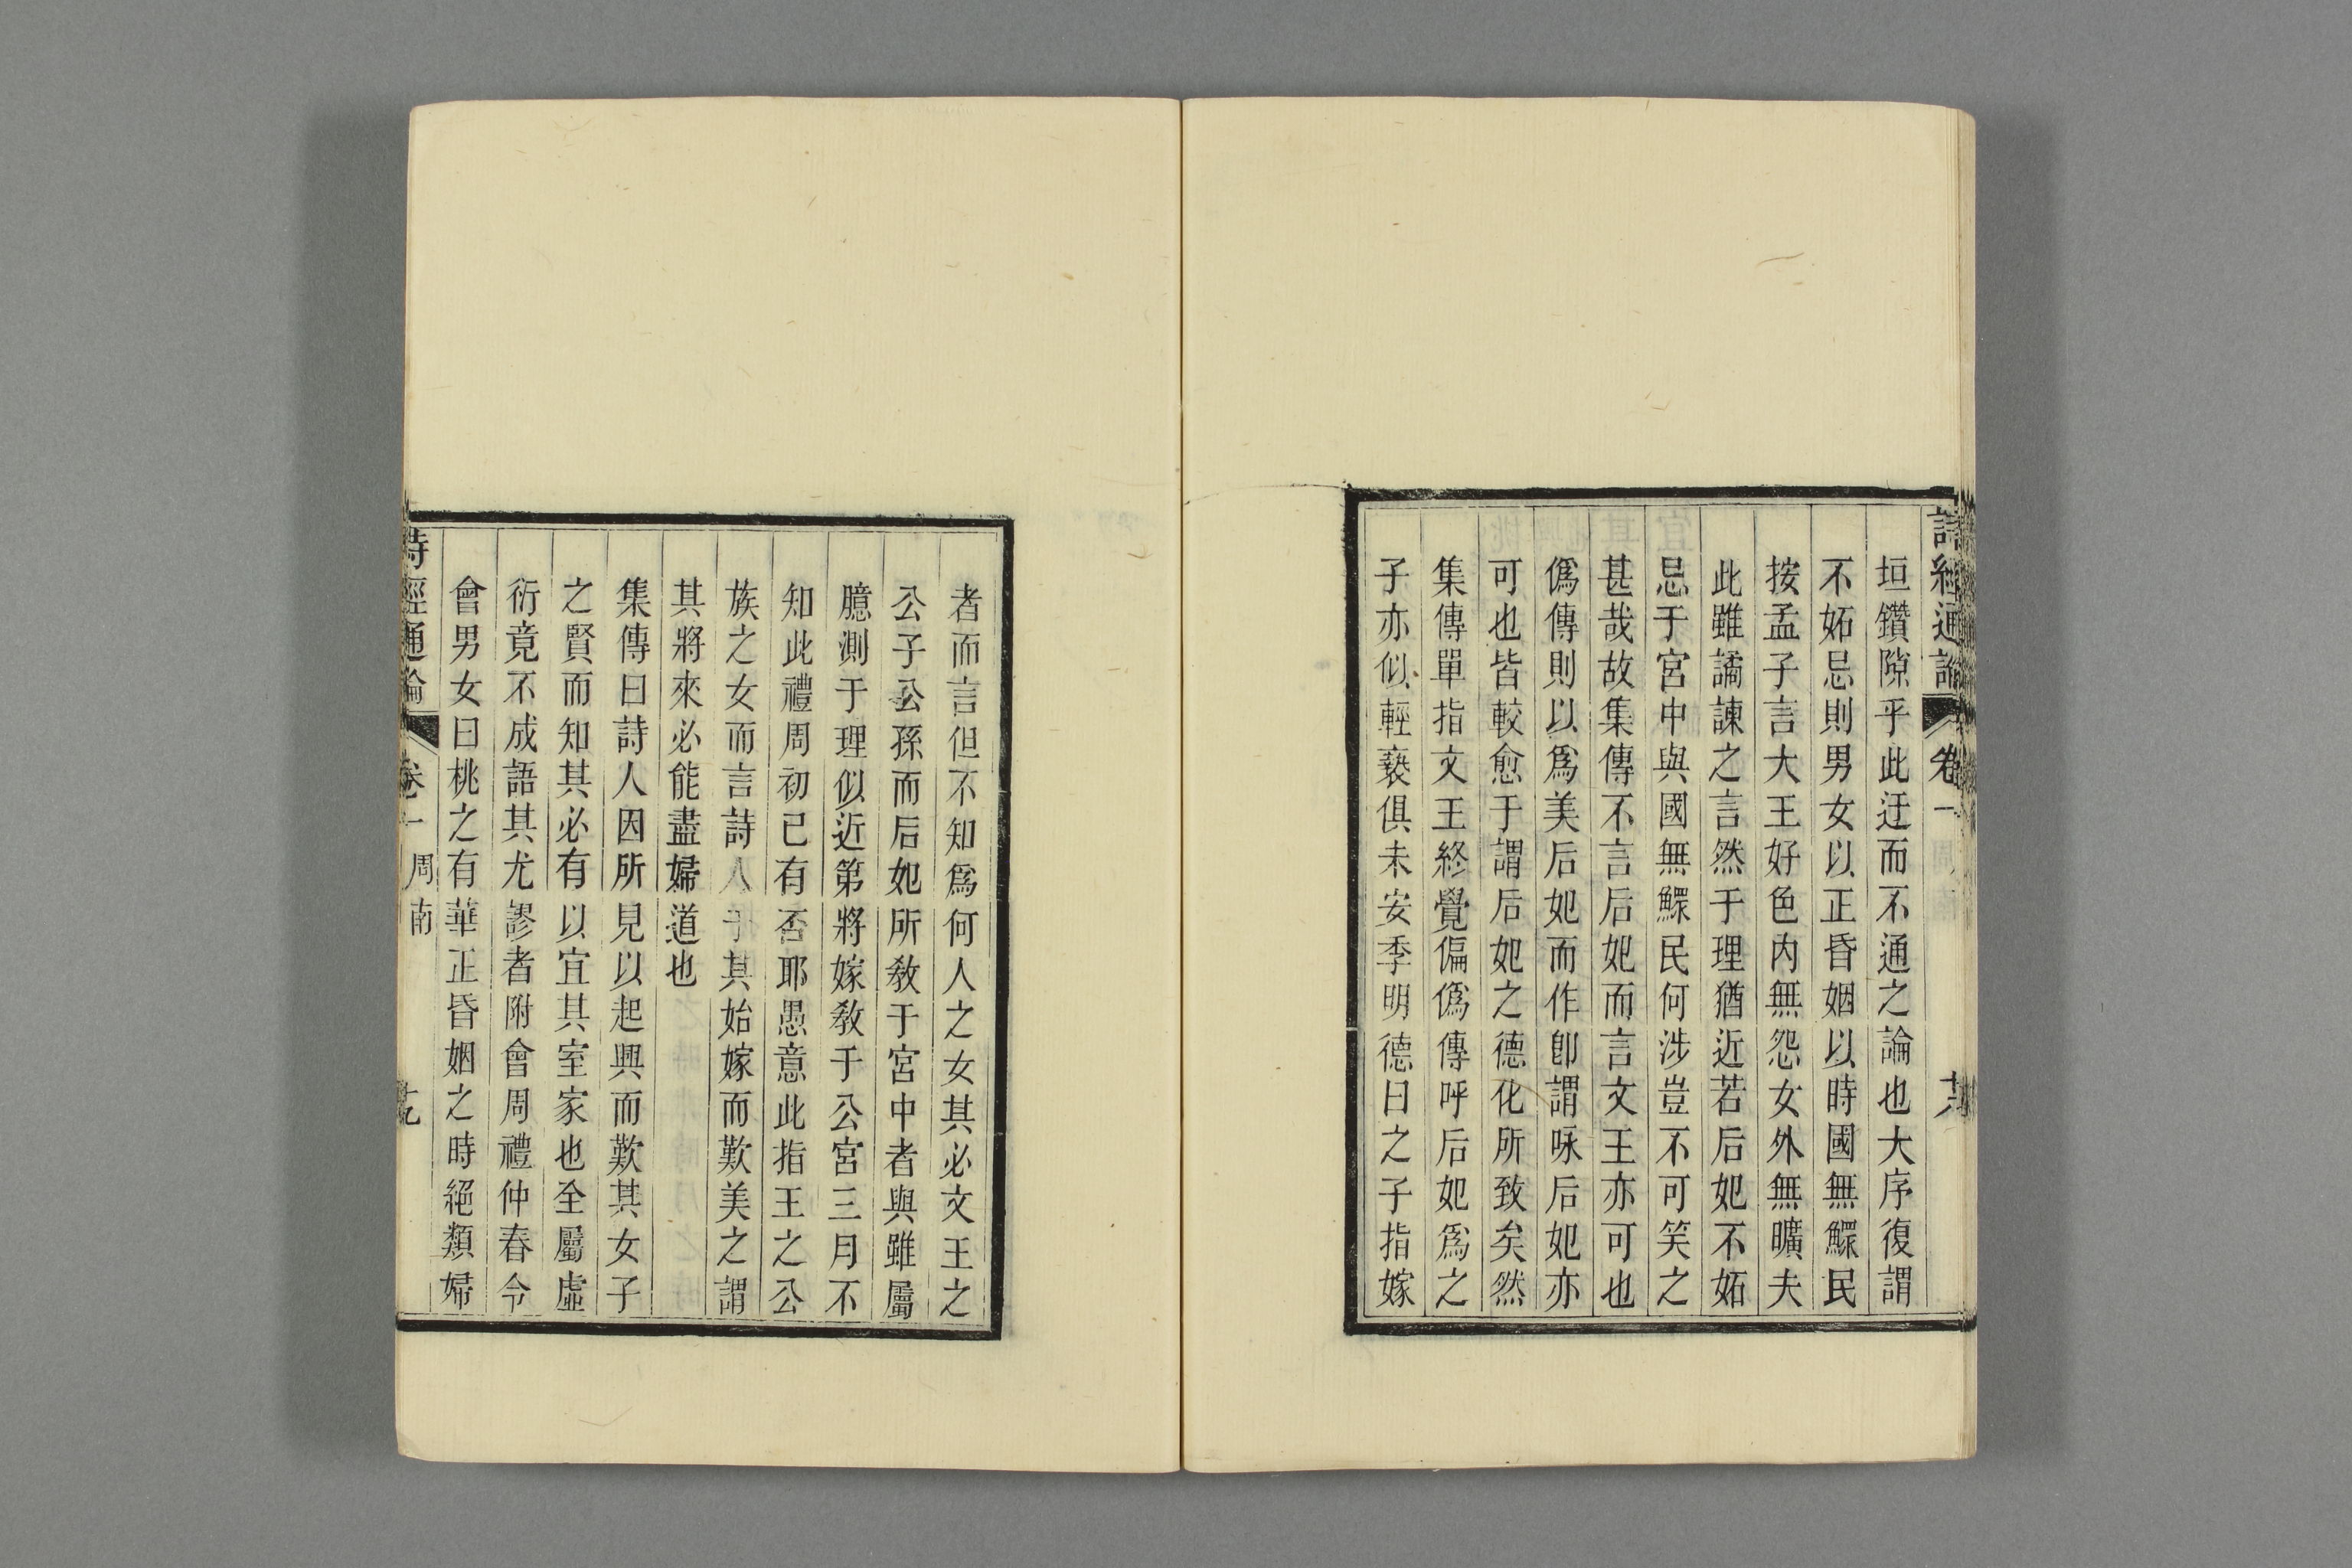 詩經通論 卷一 六
垣鑽隙乎此迂而不通之論也大序復謂
不妬忌則男女以正昏姻以時國無鰥民
按孟子言大王好色内無怨女外無曠夫
此雖譎諫之言然于理猶近若后妃不妬
忌于宮中與國無鰥民何涉豈不可笑之
甚哉故集傳不言后妃而言文王亦可也
僞傳則以爲美后妃而作卽謂咏后妃亦
可也皆較愈于謂后妃之德化所致矣然
集傳單指文王終覺偏僞傳呼后妃爲之
子亦似輕褻俱未安季明德曰之子指嫁
者而言但不知爲何人之女其必文王之
公子公孫而后妃所敎于宮中者與雖屬
臆測于理似近第將嫁敎于公宮三月不
知此禮周初已有否耶愚意此指王之公
族之女而言詩人于其始嫁而歎美之謂
其將來必能盡婦道也
集傳曰詩人因所見以起興而歎其女子
之賢而知其必有以宜其室家也全屬虛
衍竟不成語其尤謬者附會周禮仲春令
會男女曰桃之有華正昏姻之時絕類婦
詩經通論 卷一 周南